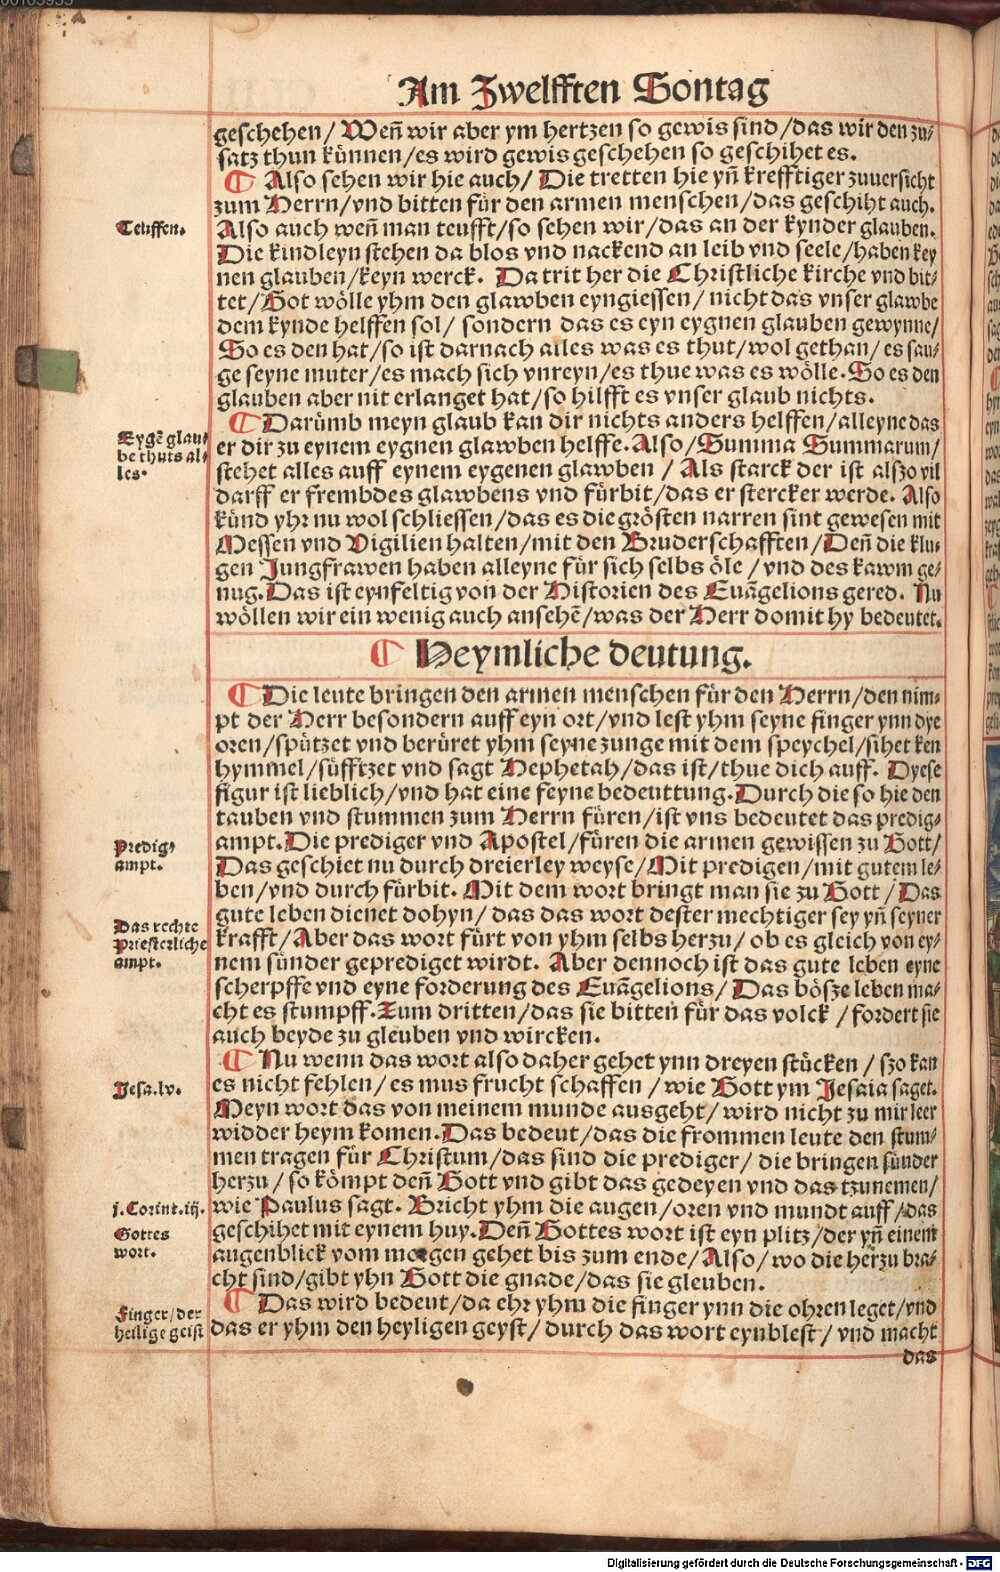 Am Zwelfften Sontag
geschehen / Weñ wir aber ym hertzen so gewis sind / das wir den zu⸗
satz thun künnen / es wird gewis geschehen so geschihet es.
¶ Also sehen wir hie auch / Die tretten hie yñ krefftiger zuuersicht
zum Herrn / vnd bitten für den armen menschen / das geschiht auch.
Teuffen.
Also auch weñ man teufft / so sehen wir / das an der kynder glauben.
Die kindleyn stehen da blos vnd nackend an leib vnd seele / haben key
nen glauben / keyn werck. Da trit her die Christliche kirche vnd bit⸗
tet / Got wölle yhm den glawben eyngiessen / nicht das vnser glawbe
dem kynde helffen sol / sondern das es eyn eygnen glauben gewynne /
So es den hat / so ist darnach alles was es thut / wol gethan / es sau⸗
ge seyne muter / es mach sich vnreyn / es thue was es wölle. So es den
glauben aber nit erlanget hat / so hilfft es vnser glaub nichts.
¶ Darümb meyn glaub kan dir nichts anders helffen / alleyne das
Eygē glau⸗
be thuts al⸗
les.
er dir zu eynem eygnen glawben helffe. Also / Summa Summarum /
stehet alles auff eynem eygenen glawben / Als starck der ist alszo vil
darff er frembdes glawbens vnd fürbit / das er stercker werde. Also
künd yhr nu wol schliessen / das es die grösten narren sint gewesen mit
Messen vnd Vigilien halten / mit den Bruderschafften / Deñ die klu⸗
gen Jungfrawen haben alleyne für sich selbs öle / vnd des kawm ge⸗
nug. Das ist eynfeltig von der Historien des Euāgelions gered. Nu
wöllen wir ein wenig auch ansehē / was der Herr domit hy bedeutet.
¶ Heymliche deutung.
¶ Die leute bringen den armen menschen für den Herrn / den nim⸗
pt der Herr besondern auff eyn ort / vnd lest yhm seyne finger ynn dye
oren / spützet vnd berüret yhm seyne zunge mit dem speychel / sihet ken
hymmel / süfftzet vnd sagt Hephetah / das ist / thue dich auff. Dyese
figur ist lieblich / vnd hat eine feyne bedeuttung. Durch die so hie den
tauben vnd stummen zum Herrn füren / ist vns bedeutet das predig⸗
Predig⸗
ampt.
ampt. Die prediger vnd Apostel / füren die armen gewissen zu Gott /
Das geschiet nu durch dreierley weyse / Mit predigen / mit gutem le⸗
ben / vnd durch fürbit. Mit dem wort bringt man sie zu Gott / Das
Das rechte
Priesterliche
ampt.
gute leben dienet dohyn / das das wort dester mechtiger sey yñ seyner
krafft / Aber das wort fürt von yhm selbs herzu / ob es gleich von ey⸗
nem sünder geprediget wirdt. Aber dennoch ist das gute leben eyne
scherpffe vnd eyne forderung des Euāgelions / Das bösze leben ma⸗
cht es stumpff. Zum dritten / das sie bitten für das volck / fordert sie
auch beyde zu gleuben vnd wircken.
¶ Nu wenn das wort also daher gehet ynn dreyen stücken / szo kan
Jesa. lv.
es nicht fehlen / es mus frucht schaffen / wie Gott ym Jesaia saget.
Meyn wort das von meinem munde ausgeht / wird nicht zu mir leer
widder heym komen. Das bedeut / das die frommen leute den stum⸗
men tragen für Christum / das sind die prediger / die bringen sünder
herzu / so kömpt deñ Gott vnd gibt das gedeyen vnd das tzunemen /
j. Corint. iij.
wie Paulus sagt. Bricht yhm die augen / oren vnd mundt auff / das
Gottes
wort.
geschihet mit eynem huy. Deñ Gottes wort ist eyn plitz / der yñ einem
augenblick vom morgen gehet bis zum ende / Also / wo die herzu bra⸗
cht sind / gibt yhn Gott die gnade / das sie gleuben.
Finger / der
heilige geist
¶ Das wird bedeut / da ehr yhm die finger ynn die ohren leget / vnd
das er yhm den heyligen geyst / durch das wort eynblest / vnd macht
das
Digitalisierung gefördert durch die Deutsche Forschungsgemeinschaft - DFG